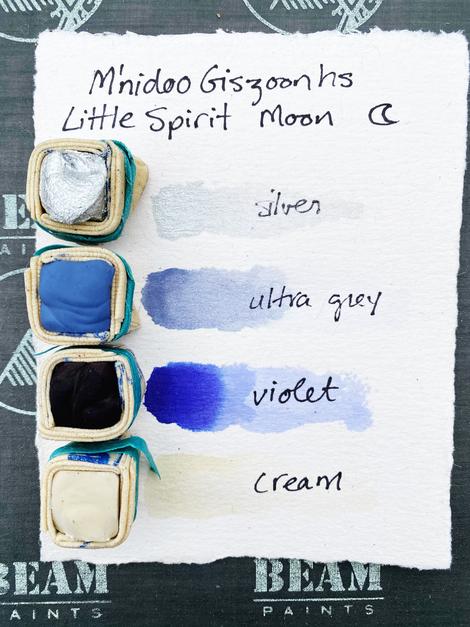 M'nidoo Giszoonhs
Little Spirit Moon
silver
ultra grey
violet
cream
BEAM
PAINTS
BEAM
PAINTS